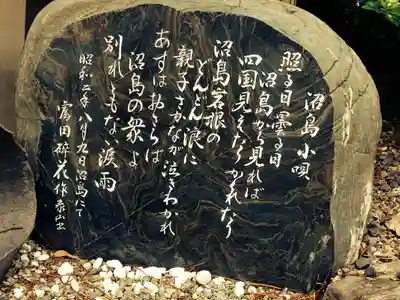 沼島小唄
照る日曇る日
沼島から見れば
四国見えたりかくれたり
沼島岩根の
どんどん浪に
親子さかなが泣きわかれ
あすはおさらば
沼島の衆よ
別れともない涙雨
昭和二年八月九日沼島にて
富田砕花作